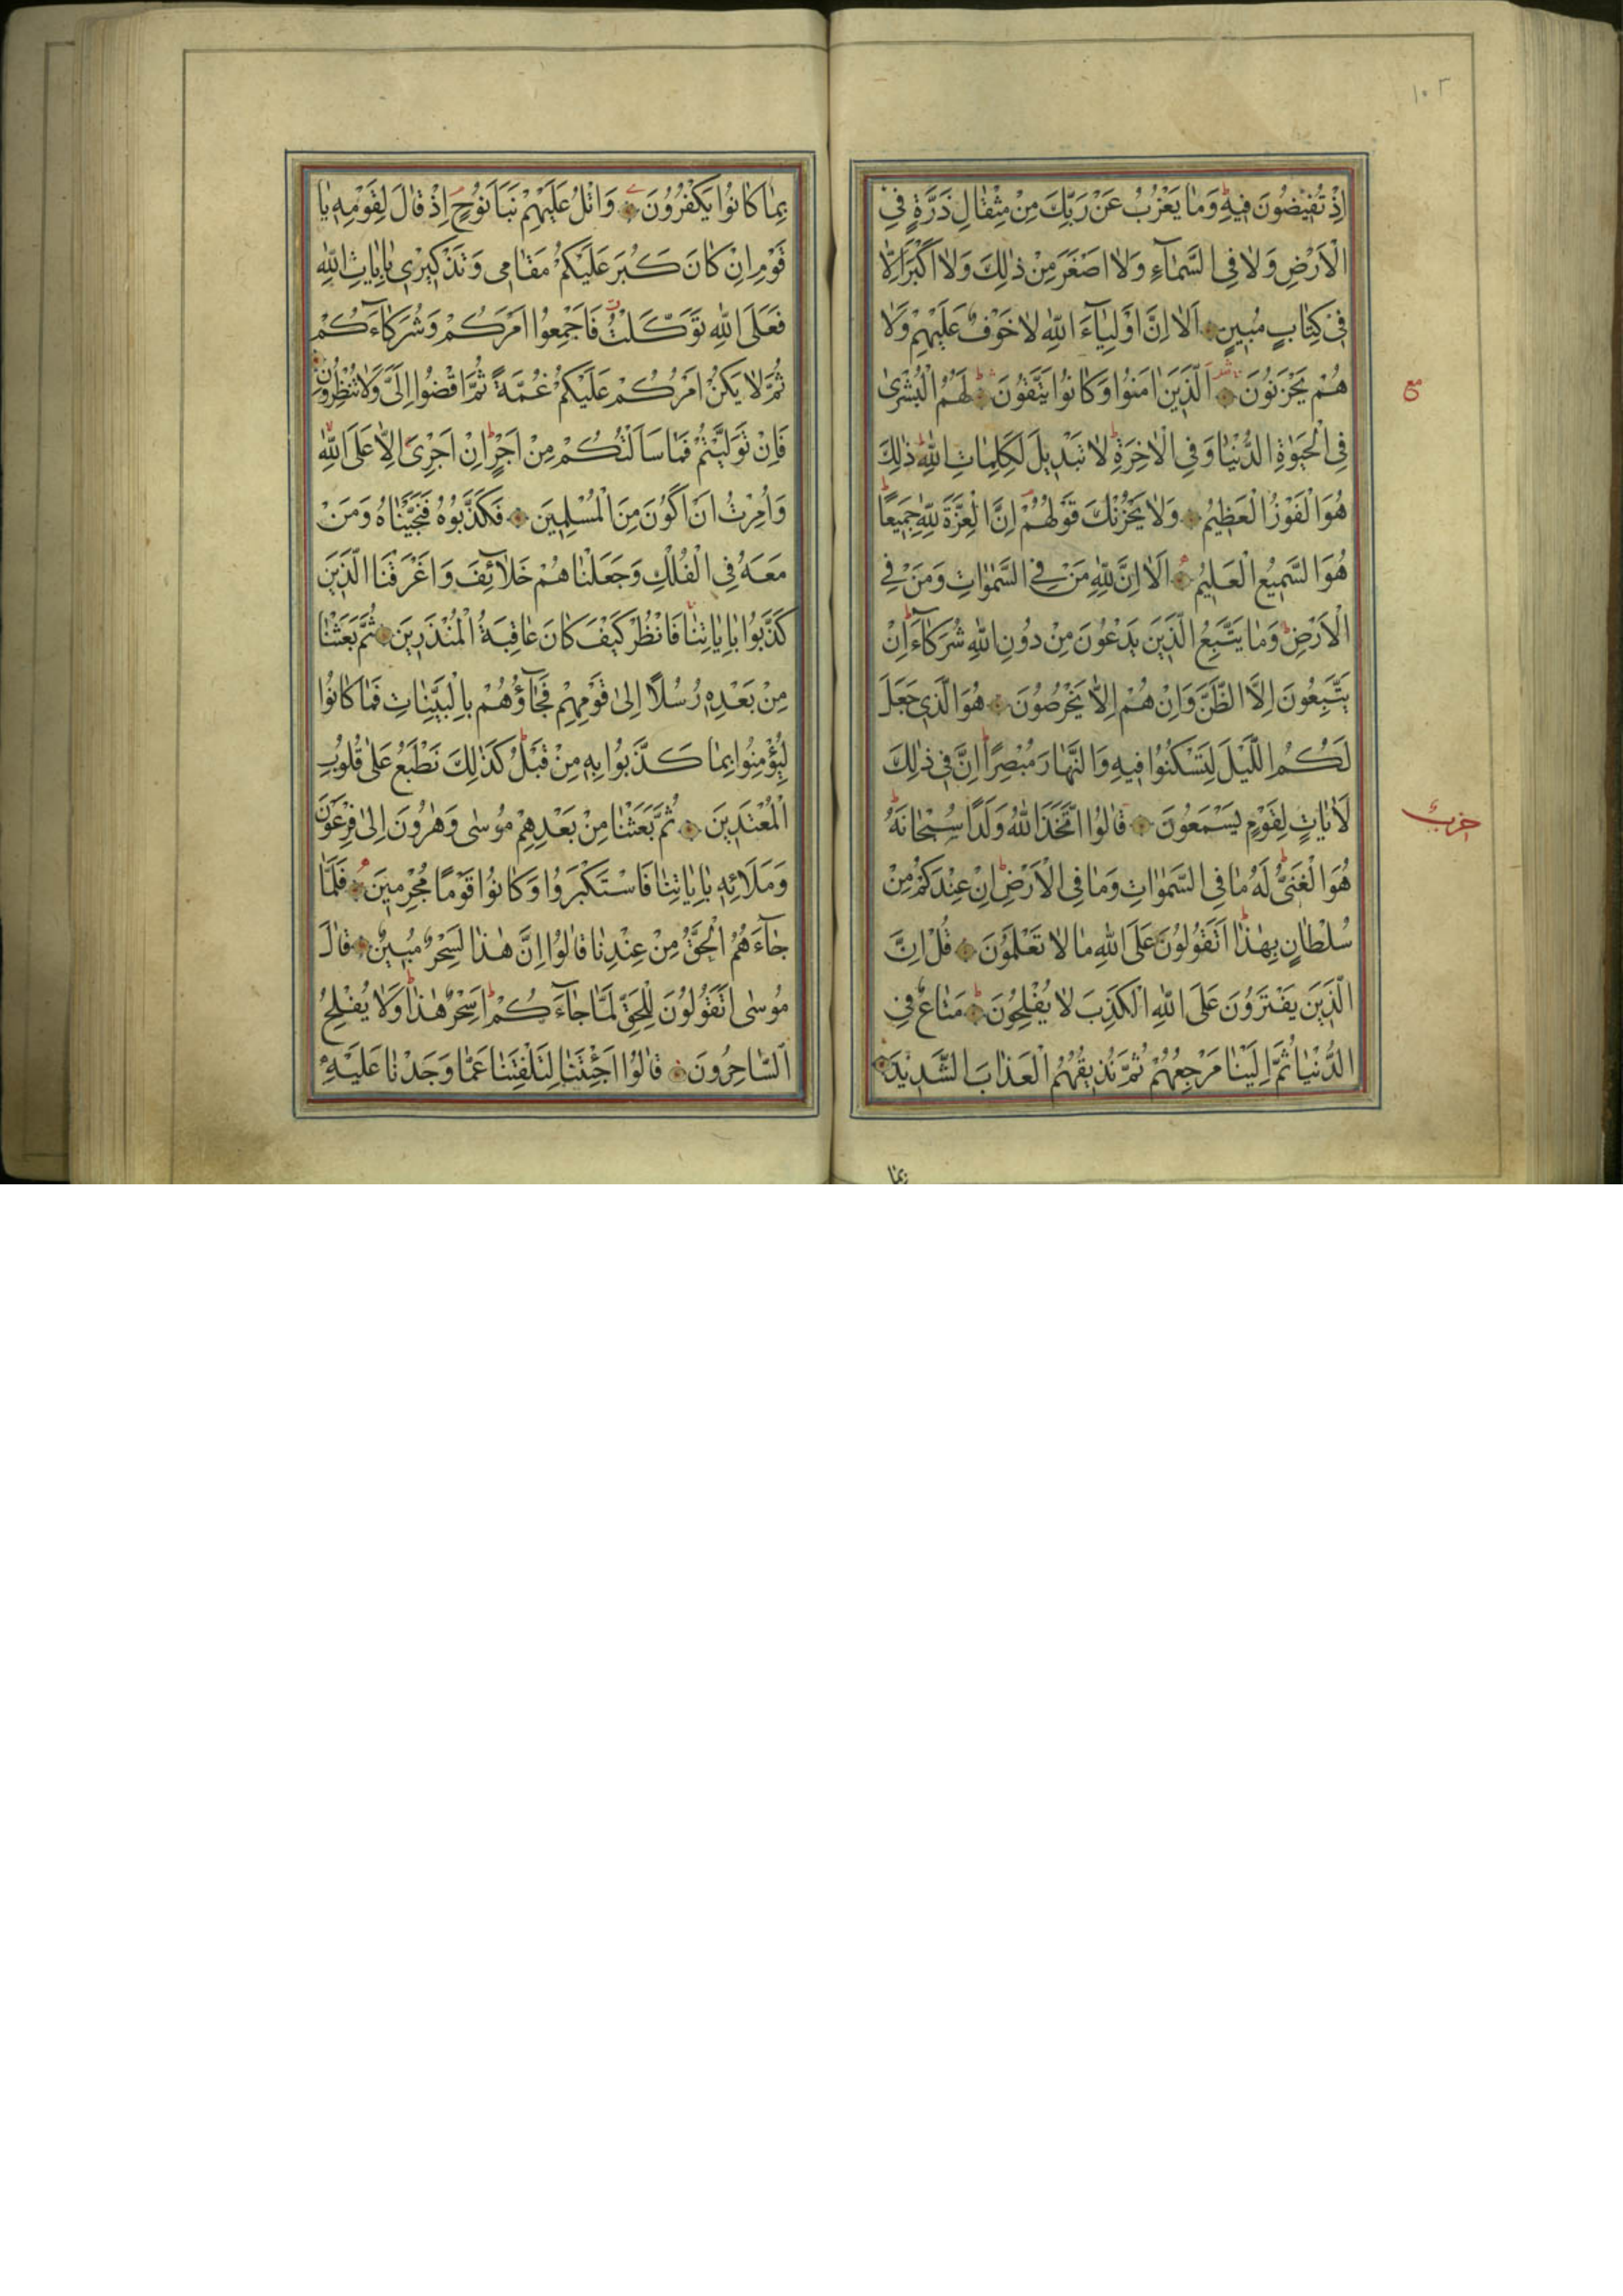 ١٠٢
اِذْ تُفٖيضُونَ فٖيهِ وَمَا يَعْزُبُ عَنْ رَبِّكَ مِنْ مِثْقَالِ ذَرَّةٍ فِي
الْاَرْضِ وَلَا فِي السَّمَآءِ وَلَا اَصْغَرَ مِنْ ذٰلِكَ وَلَا اَكْبَرَ اِلَّا
فٖي كِتَابٍ مُبٖينٍ اَلَا اِنَّ اَوْلِيَآءَ اللّٰهِ لَا خَوْفٌ عَلَيْهِمْ وَلَا
هُمْ يَحْزَنُونَ اَلَّذٖينَ اٰمَنُوا وَكَانُوا يَتَّقُونَ لَهُمُ الْبُشْرٰى
مع
فِي الْحَيٰوةِ الدُّنْيَا وَفِي الْاٰخِرَةِ لَا تَبْدٖيلَ لِكَلِمَاتِ اللّٰهِ ذٰلِكَ
هُوَ الْفَوْزُ الْعَظٖيمُ وَلَا يَحْزُنْكَ قَوْلُهُمْ اِنَّ الْعِزَّةَ لِلّٰهِ جَمٖيعًا
هُوَ السَّمٖيعُ الْعَلٖيمُ اَلَا اِنَّ لِلّٰهِ مَنْ فِي السَّمٰوَاتِ وَمَنْ فِي
الْاَرْضِ وَمَا يَتَّبِعُ الَّذٖينَ يَدْعُونَ مِنْ دُونِ اللّٰهِ شُرَكَآءَ اِنْ
يَتَّبِعُونَ اِلَّا الظَّنَّ وَاِنْ هُمْ اِلَّا يَخْرُصُونَ هُوَ الَّذٖي جَعَلَ
لَكُمُ اللَّيْلَ لِتَسْكُنُوا فٖيهِ وَالنَّهَارَ مُبْصِرًا اِنَّ فٖي ذٰلِكَ
لَاٰيَاتٍ لِقَوْمٍ يَسْمَعُونَ قَالُوا اتَّخَذَ اللّٰهُ وَلَدًا سُبْحَانَهُ
حزب
هُوَ الْغَنِيُّ لَهُ مَا فِي السَّمٰوَاتِ وَمَا فِي الْاَرْضِ اِنْ عِنْدَكُمْ مِنْ
سُلْطَانٍ بِهٰذَا اَتَقُولُونَ عَلَى اللّٰهِ مَا لَا تَعْلَمُونَ قُلْ اِنَّ
الَّذٖينَ يَفْتَرُونَ عَلَى اللّٰهِ الْكَذِبَ لَا يُفْلِحُونَ مَتَاعٌ فِي
الدُّنْيَا ثُمَّ اِلَيْنَا مَرْجِعُهُمْ ثُمَّ نُذٖيقُهُمُ الْعَذَابَ الشَّدٖيدَ
بما
بِمَا كَانُوا يَكْفُرُونَ وَاتْلُ عَلَيْهِمْ نَبَاَ نُوحٍ اِذْ قَالَ لِقَوْمِهٖ يَا
قَوْمِ اِنْ كَانَ كَبُرَ عَلَيْكُمْ مَقَامٖي وَتَذْكٖيرٖي بِاٰيَاتِ اللّٰهِ
فَعَلَى اللّٰهِ تَوَكَّلْتُ فَاَجْمِعُوا اَمْرَكُمْ وَشُرَكَآءَكُمْ
ثُمَّ لَا يَكُنْ اَمْرُكُمْ عَلَيْكُمْ غُمَّةً ثُمَّ اقْضُوا اِلَيَّ وَلَا تُنْظِرُونِ
فَاِنْ تَوَلَّيْتُمْ فَمَا سَاَلْتُكُمْ مِنْ اَجْرٍ اِنْ اَجْرِيَ اِلَّا عَلَى اللّٰهِ
وَاُمِرْتُ اَنْ اَكُونَ مِنَ الْمُسْلِمٖينَ فَكَذَّبُوهُ فَنَجَّيْنَاهُ وَمَنْ
مَعَهُ فِي الْفُلْكِ وَجَعَلْنَاهُمْ خَلَآئِفَ وَاَغْرَقْنَا الَّذٖينَ
كَذَّبُوا بِاٰيَاتِنَا فَانْظُرْ كَيْفَ كَانَ عَاقِبَةُ الْمُنْذَرٖينَ ثُمَّ بَعَثْنَا
مِنْ بَعْدِهٖ رُسُلًا اِلٰى قَوْمِهِمْ فَجَآؤُهُمْ بِالْبَيِّنَاتِ فَمَا كَانُوا
لِيُؤْمِنُوا بِمَا كَذَّبُوا بِهٖ مِنْ قَبْلُ كَذٰلِكَ نَطْبَعُ عَلٰى قُلُوبِ
الْمُعْتَدٖينَ ثُمَّ بَعَثْنَا مِنْ بَعْدِهِمْ مُوسٰى وَهٰرُونَ اِلٰى فِرْعَوْنَ
وَمَلَائِهٖ بِاٰيَاتِنَا فَاسْتَكْبَرُوا وَكَانُوا قَوْمًا مُجْرِمٖينَ فَلَمَّا
جَآءَهُمُ الْحَقُّ مِنْ عِنْدِنَا قَالُوا اِنَّ هٰذَا لَسِحْرٌ مُبٖينٌ قَالَ
مُوسٰى اَتَقُولُونَ لِلْحَقِّ لَمَّا جَآءَكُمْ اَسِحْرٌ هٰذَا وَلَا يُفْلِحُ
السَّاحِرُونَ قَالُوا اَجِئْتَنَا لِتَلْفِتَنَا عَمَّا وَجَدْنَا عَلَيْهِ